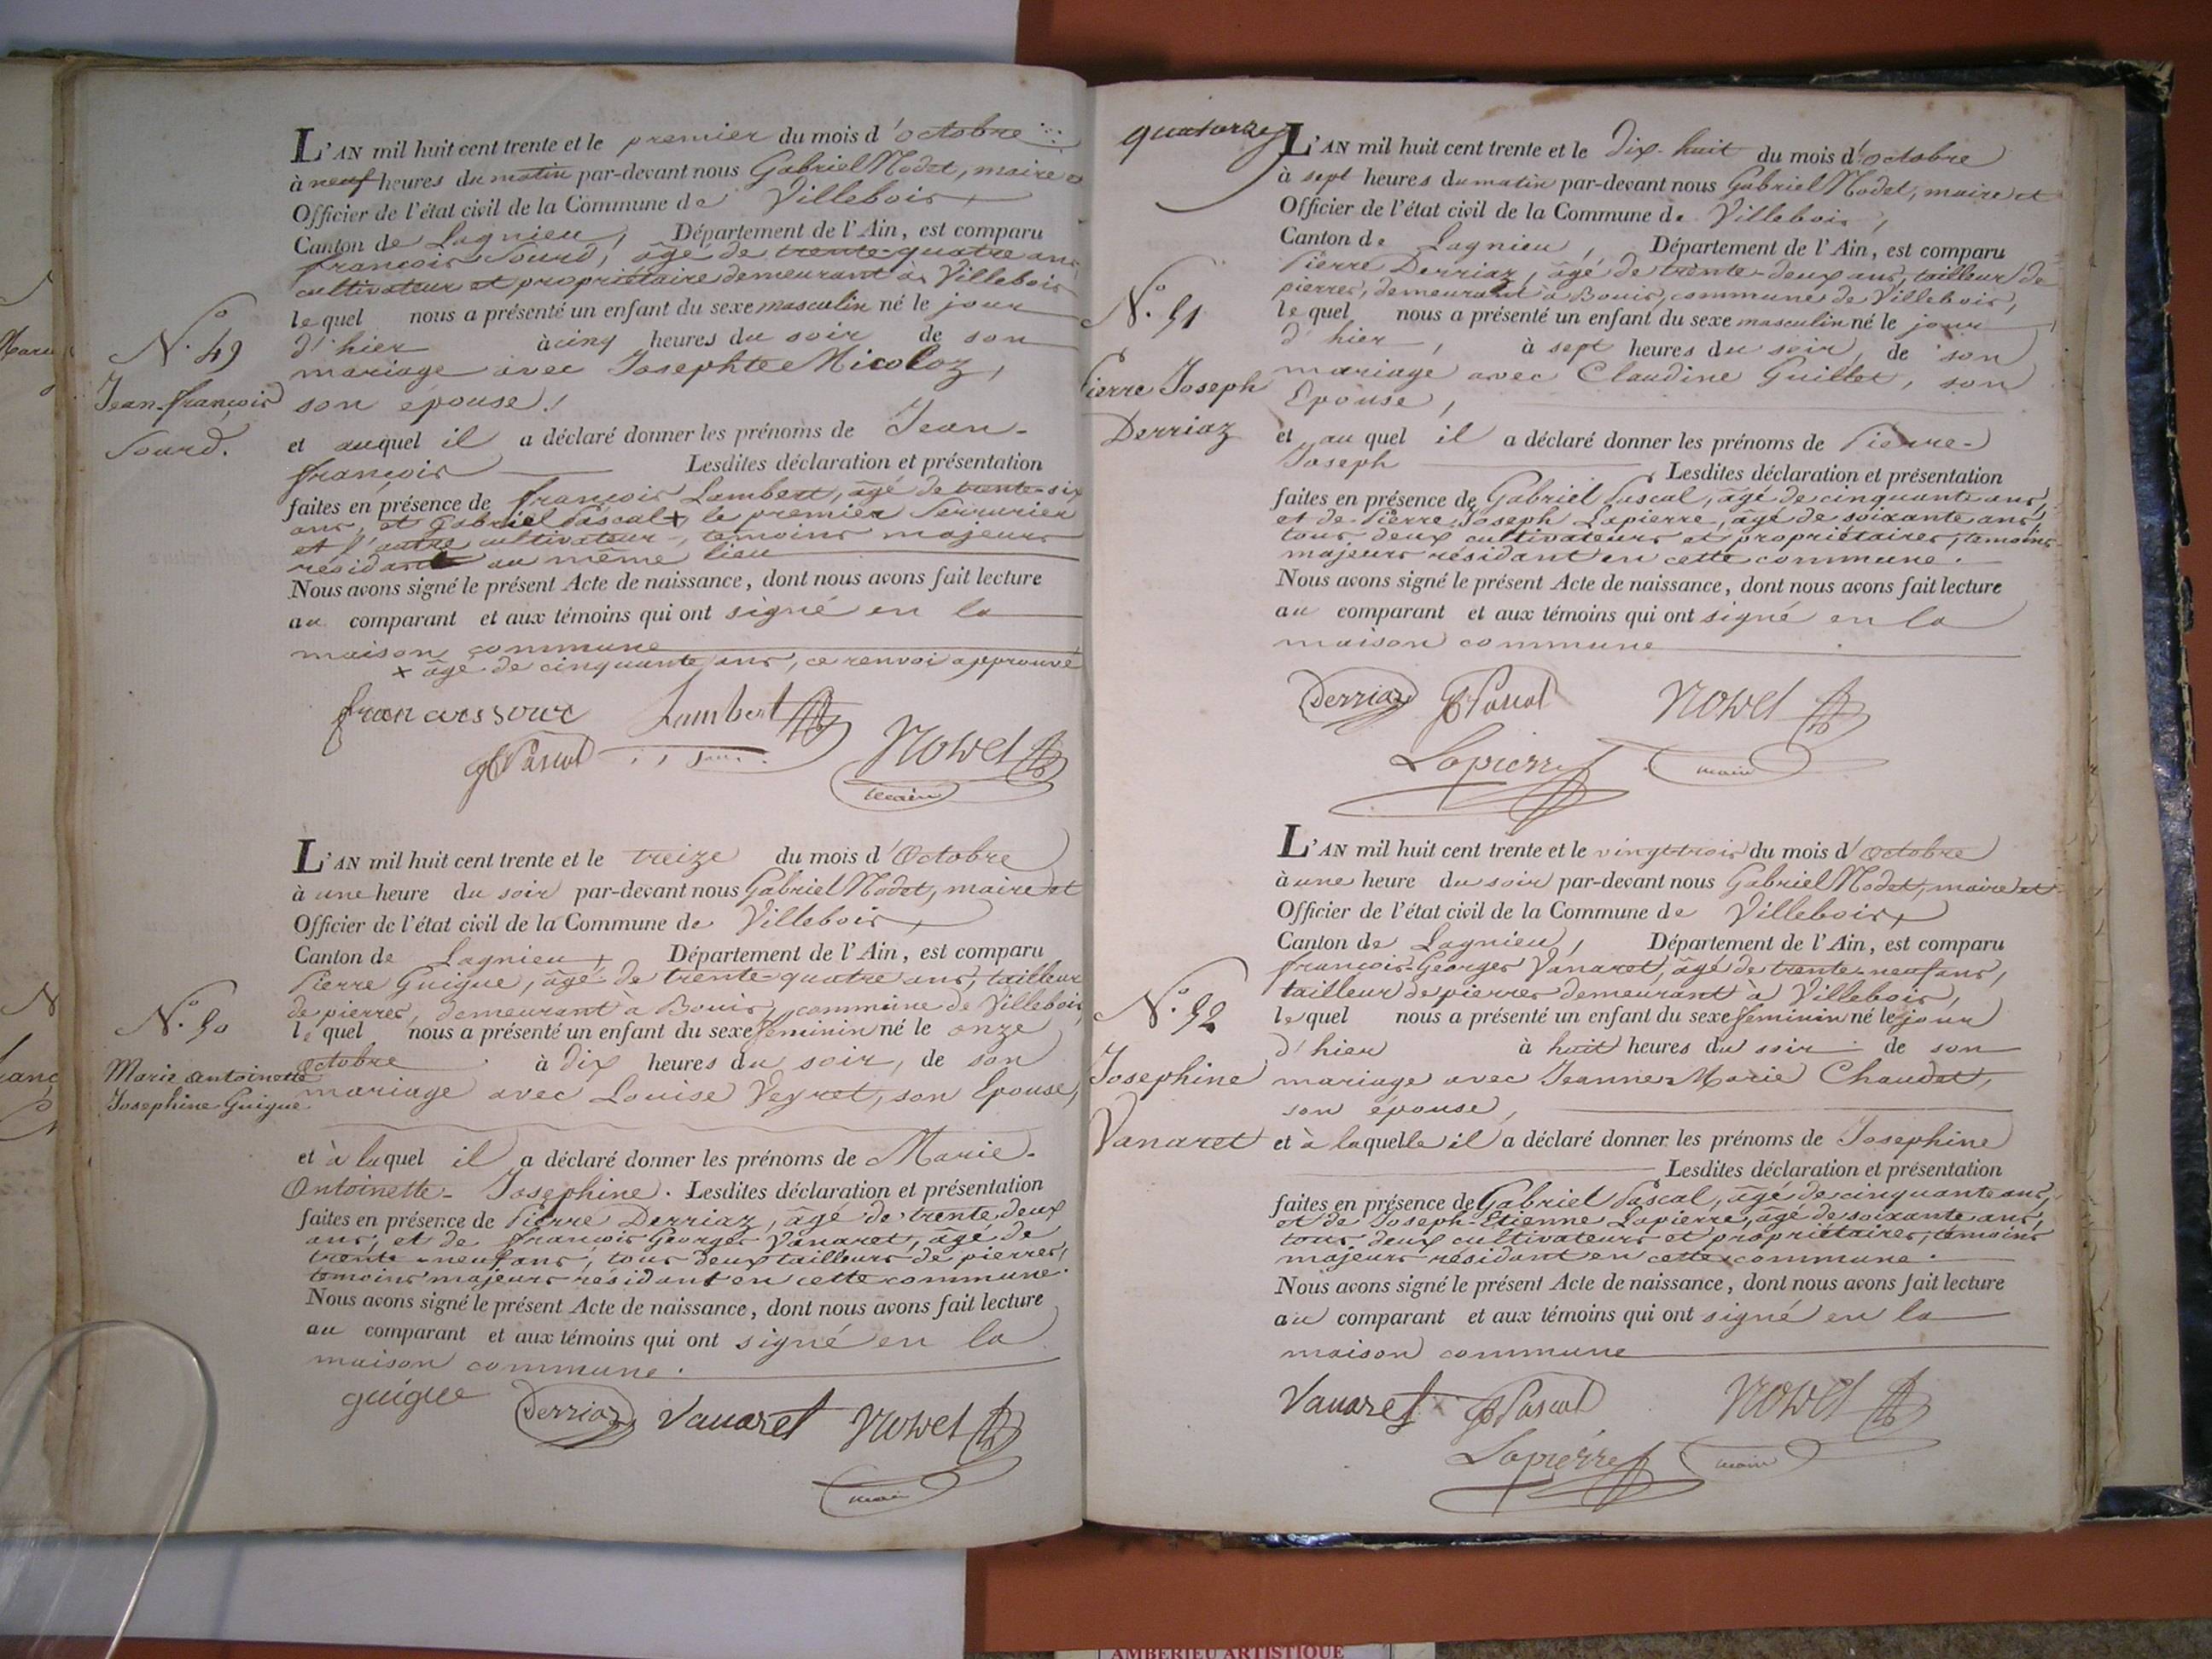 L'AN mil huit cent trente et le premier du mois d'octobre
à neuf heures du matin par-devant nous Gabriel Nodet, maire et
Officier de l'état civil de la Commune de Villebois,
Canton de Lagnieu, Département de l'Ain, est comparu
françois Sourd, âgé de trente-quatre ans,
cultivateur et propriétaire demeurant à Villebois
lequel nous a présenté un enfant du sexe masculin né le jour
d'hier à cinq heures du soir de son
mariage avec Josephte Micoloz,
son épouse,
et auquel il a déclaré donner les prénoms de Jean-
françois Lesdites déclaration et présentation
faites en présence de françois Lambert, âgé de trente-six
ans, et Gabriel Pascal + le premier Serrurier
et l'autre cultivateur, témoins majeurs
résidant au même lieu
Nous avons signé le présent Acte de naissance, dont nous avons fait lecture
au comparant et aux témoins qui ont signé en la
maison commune
+ âgé de cinquante ans, ce renvoi approuvé
N.o 49
Jean-françois
Sourd.
Lambert
G Pascal
Nowet
maire
L'AN mil huit cent trente et le treize du mois d'Octobre
à une heure du soir par-devant nous Gabriel Nodet, maire et
Officier de l'état civil de la Commune de Villebois,
Canton de Lagnieu, Département de l'Ain, est comparu
Pierre Guigue, âgé de trente-quatre ans, tailleur
de pierres, demeurant à Bouis, commune de Villebois,
lequel nous a présenté un enfant du sexe feminin né le onze
Octobre à dix heures du soir, de son
mariage avec Louise Veyret, son Epouse,
et à laquel il a déclaré donner les prénoms de Marie-
Antoinette-Josephine. Lesdites déclaration et présentation
faites en présence de Pierre Derriaz, âgé de trente deux
ans, et de françois Georges Vanaret, âgé de
trente-neuf ans, tous deux tailleurs de pierres,
témoins majeurs résidant en cette commune.
Nous avons signé le présent Acte de naissance, dont nous avons fait lecture
au comparant et aux témoins qui ont signé en la
maison commune.
N.o 50
Marie Antoinette
Josephine Guigue
guigue Derriaz Vanaret Nowet
maire
quatorze
L'AN mil huit cent trente et le Dix-huit du mois d'Octobre
à sept heures du matin par-devant nous Gabriel Nodet, maire et
Officier de l'état civil de la Commune de Villebois,
Canton de Lagnieu, Département de l'Ain, est comparu
Pierre Derriaz, âgé de trente-deux ans, tailleur de
pierres, demeurant à Bouis, commune de Villebois,
lequel nous a présenté un enfant du sexe masculin né le jour
d'hier, à sept heures du soir, de son
mariage avec Claudine Guillet, son
Epouse,
et au quel il a déclaré donner les prénoms de Pierre-
Joseph Lesdites déclaration et présentation
faites en présence de Gabriel Pascal, âgé de cinquante ans,
et de Pierre Joseph Lapierre, âgé de soixante ans,
tous deux cultivateurs et propriétaires, témoins
majeurs résidant en cette commune.
Nous avons signé le présent Acte de naissance, dont nous avons fait lecture
au comparant et aux témoins qui ont signé en la
maison commune
N.o 51
Pierre Joseph
Derriaz
Derriaz G Pascal Nowet
Lapierre maire
L'AN mil huit cent trente et le vingt-trois du mois d'Octobre
à une heure du soir par-devant nous Gabriel Nodet, maire et
Officier de l'état civil de la Commune de Villebois,
Canton de Lagnieu, Département de l'Ain, est comparu
françois-Georges Vanaret, âgé de trente-neuf ans,
tailleur de pierres demeurant à Villebois,
lequel nous a présenté un enfant du sexe feminin né le jour
d'hier à huit heures du soir de son
mariage avec Jeanne-Marie Chaudet,
son épouse,
et à laquelle il a déclaré donner les prénoms de Josephine
Lesdites déclaration et présentation
faites en présence de Gabriel Pascal, âgé de cinquante ans,
et de Joseph-Etienne Lapierre, âgé de soixante ans,
tous deux cultivateurs et propriétaires, témoins
majeurs résidant en cette commune.
Nous avons signé le présent Acte de naissance, dont nous avons fait lecture
au comparant et aux témoins qui ont signé en la
maison commune
N.o 52
Josephine
Vanaret
Vanaret G Pascal Nowet
Lapierre maire
AMBERIEU ARTISTIQUE